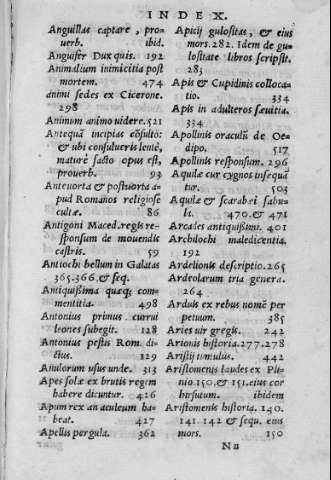 INDEX.
Anguillas captare, pro-
uerb. ibid.
Anguifer Dux quis. 192
Animalium inimicitia post
mortem. 474
animi sedes ex Cicerone.
298
Animum animo uidere. 521
Antequã incipias cõsulto:
& ubi consulueris leniè,
maturè facto opus est,
prouerb. 93
Anteuorta & postuorta a-
pud Romanos religiose
cultæ. 86
Antigoni Maced. regis re-
sponsum de mouendis
castris. 59
Antiochi bellum in Galatas
365.366. & seq.
Antiquißima quæq; com-
mentitia. 498
Antonius primus currui
leones subegit. 128
Antonius pestis Rom. di-
ctus. 129
Anulorum usus unde. 313
Apes solæ ex brutis regem
habere dicuntur. 426
Apum rex an aculeum ha-
beat. 427
Apellis pergula. 362
Apicij gulositas, & eius
mors. 282. Idem de gu-
lositate libros scripsit.
283
Apis & Cupidinis colloca-
tio. 334
Apis in adulteros sæuitia.
334
Apollinis oraculũ de Oe-
dipo. 517
Apollinis responsum. 296
Aquilæ cur cygnos insequã
tur. 503
Aquilæ & scarabæi fabu-
la. 470. & 471
Arcades antiquißimi. 401
Archilochi maledicentia.
192
Ardelionis descriptio. 265
Ardeolarum tria genera.
264
Arduis ex rebus nomẽ per
petuum. 385
Aries uir gregis. 242
Arionis historia. 277.278
Aristij tumulus. 442
Aristomenis laudes ex Pli-
nio. 150. & 151. eius cor
hirsutum. ibidem
Aristomenis historia. 140.
141. 142 & sequ. eius
mors. 150
Nii